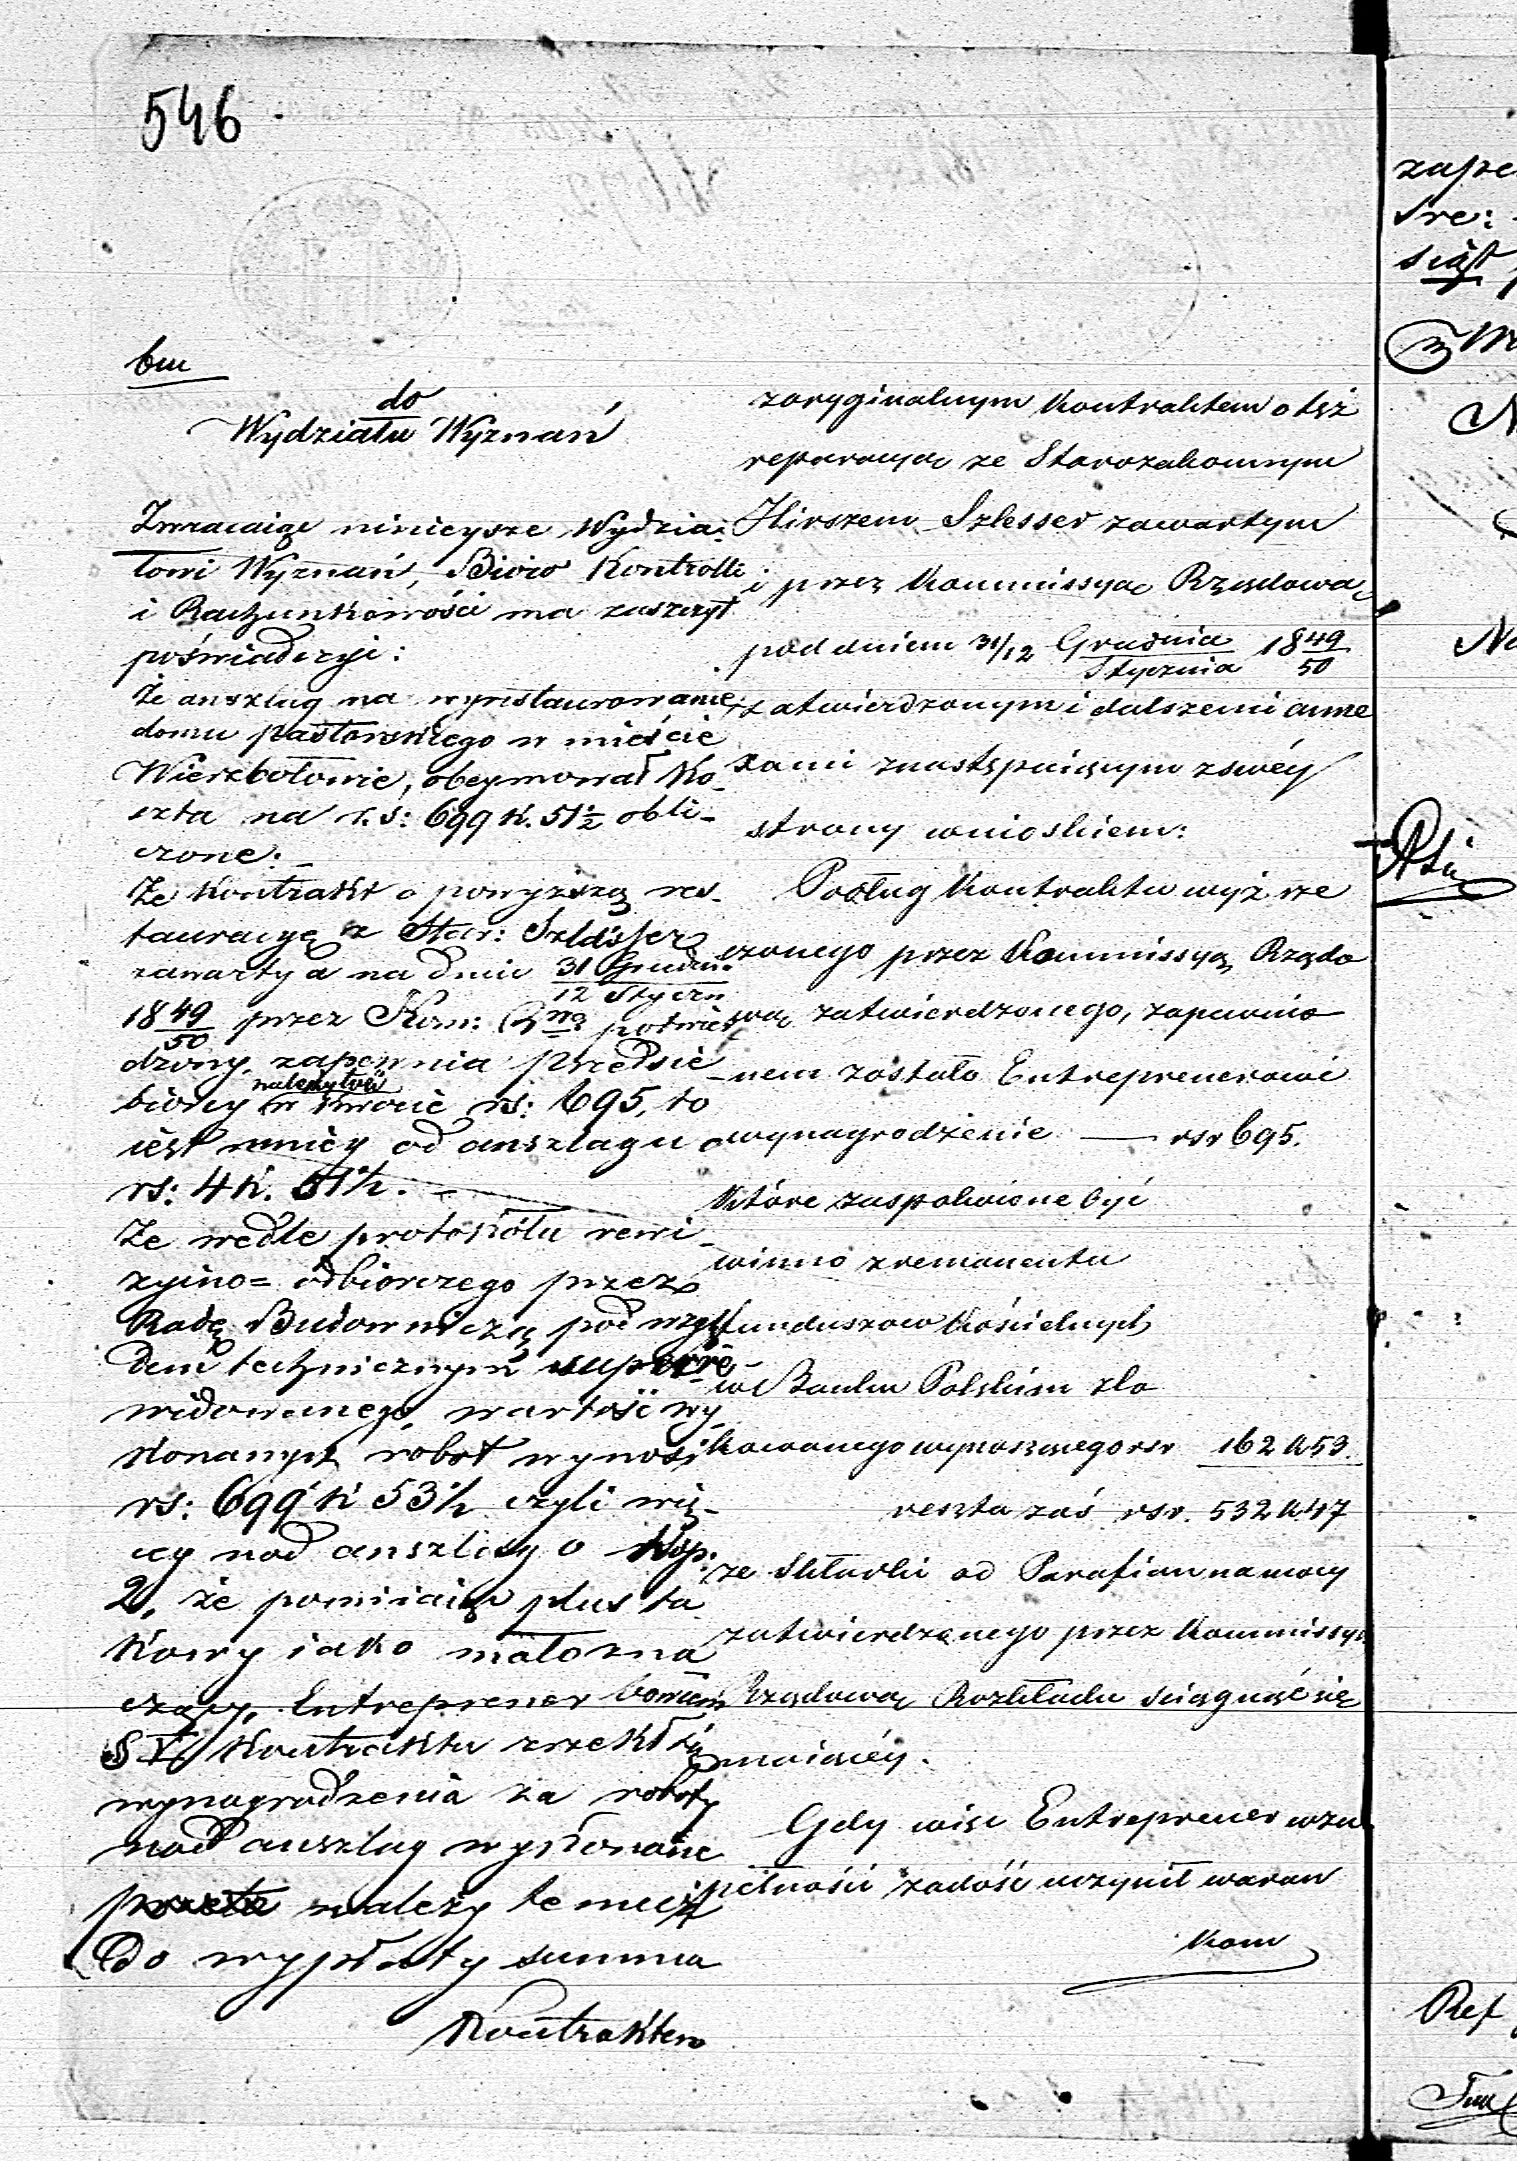 546
bm
do
Wydziału Wyznań
Zwracaiąc ninieysze Wydzia-
łowi Wyznań, Biuro Kontrolli
i Rachunkowości ma zaszczyt
poświadczyć:
Że anszlag na wyrestaurowanie
domu pastorskiego w mieście
Wierzbołowie, obeymował Ko-
szta na r. s: 699 k. 51½ obli-
czone.
Że Kontrakt o powyższą res-
tauracyę z Star: Szlesser
zawarty a na dniu 31 Grudn. / 12 Styczn
18 49/50 przez Kom: Rzną potwier
dzony, zapewnia Przedsię
biorcy należytość w kwocie rs: 695, to
iest mniey od anszlagu o
rs: 4 k. 51½. –
Że wedle protokółu rewi-
zyino= odbiorczego przez
Radę Budowniczą pod wzglę
dem technicznym superre
widowanego, wartość wy-
konanych robot wynosi
rs: 699 k 53½ czyli wię-
cy nad anszlag o kop:
2, że pomiiaiąc plus ta
kowy iako mało zna
czący, Entreprener bowiem
§ V Kontraktu zrzekł się
wynagrodzenia za roboty
nad anszlag wykonane
należy temuż
Do wypłaty summa
Kontraktem
z oryginalnym Kontraktem o tęż
reparacyą ze Starozakonnym
Hirszem Szlesser zawartym
i przez Kommissyą Rządową
pod dniem 31/12 Grudnia / Stycznia 18 49/50
zatwierdzonym i dalszemi anne
xami z następuiącym z swéy
strony wnioskiem:
Podług Kontraktu wyż rze
czonego przez Kommissyą Rządo
wą zatwierdzonego, zapewnio
nem zostało Entreprenerowi
wynagrodzenie — rsr 695.
Które zaspokoione być
winno z remanentu
funduszów Kościelnych
w Banku Polskim zlo
kowanego wynoszącego rsr 162 k 53.
reszta zaś rsr. 532 k 47
ze Składki od Parafian na mocy
zatwierdzonego przez Kommissyą
Rządową Rozkładu ściągnąć się
maiącéy.
Gdy więc Entreprener w zu
pełności zadość uczynił warun
kom
zape
sre:
siąt
No
Ref